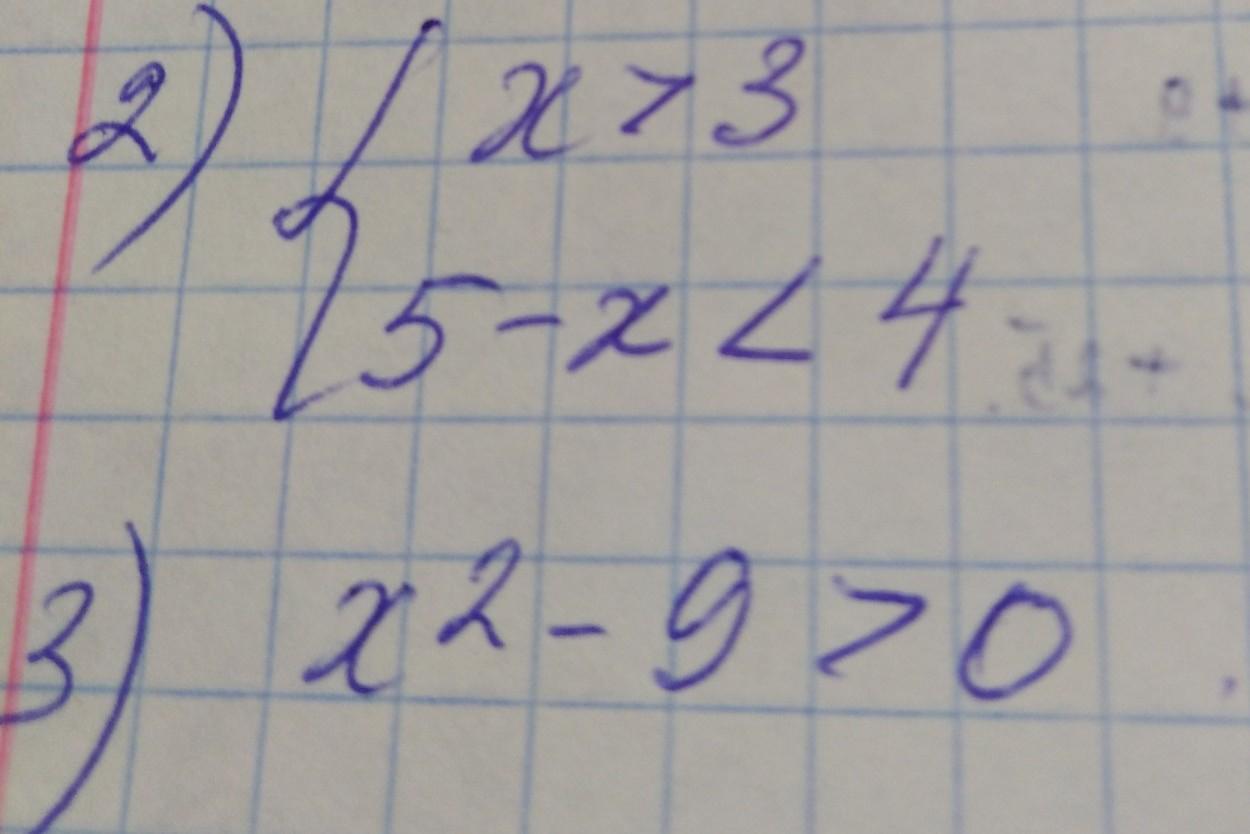 2) { x > 3
5 - x < 4
3) x² - 9 > 0